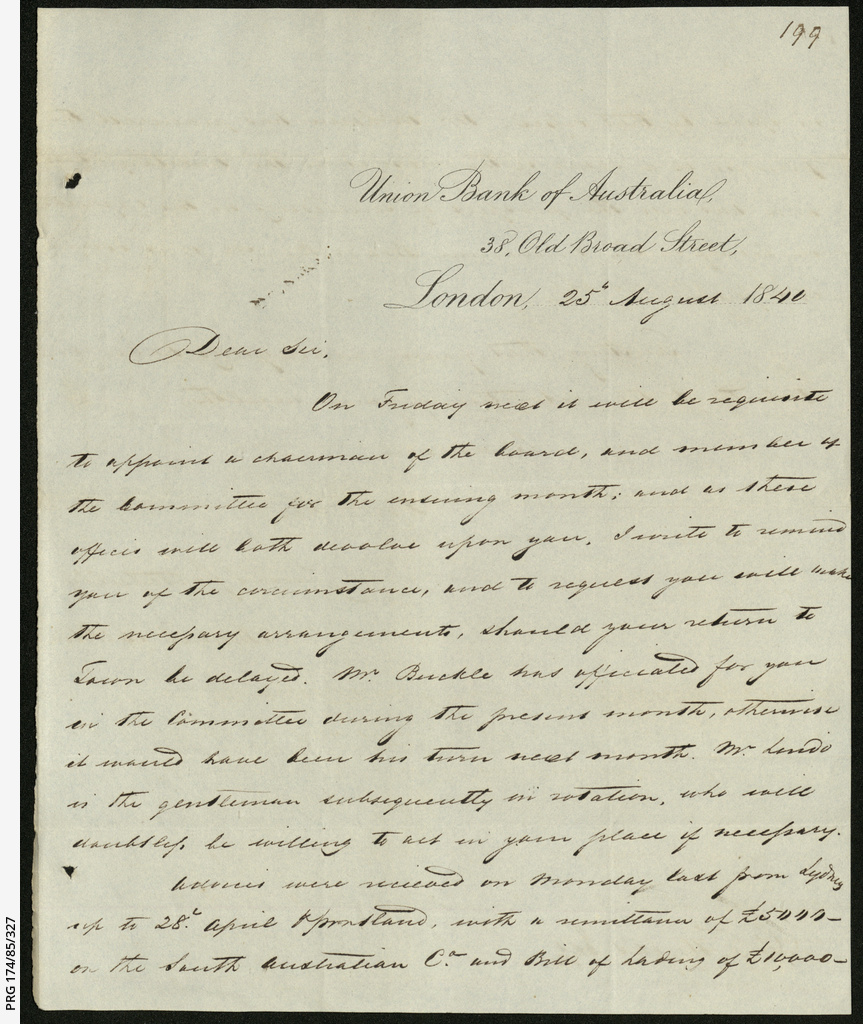 199
Union Bank of Australia,
38, Old Broad Street,
London, 25th August 1840
Dear Sir,
On Friday next it will be requisite
to appoint a chairman of the board, and member of
the Committee for the ensuing month; and as these
offices will both devolve upon you, I write to remind
you of the circumstance, and to request you will make
the necessary arrangements, should your return to
Town be delayed. Mr. Buckle has officiated for you
in the Committee during the present month, otherwise
it would have been his turn next month. Mr. Lindo
is the gentleman subsequently in rotation, who will
doubtless be willing to act in your place if necessary.
Advices were received on Monday last from Sydney
up to 28th April Portland, with a remittance of £5000-
on the South Australian Co. and Bill of Lading of £10,000-
PRG 174/85/327